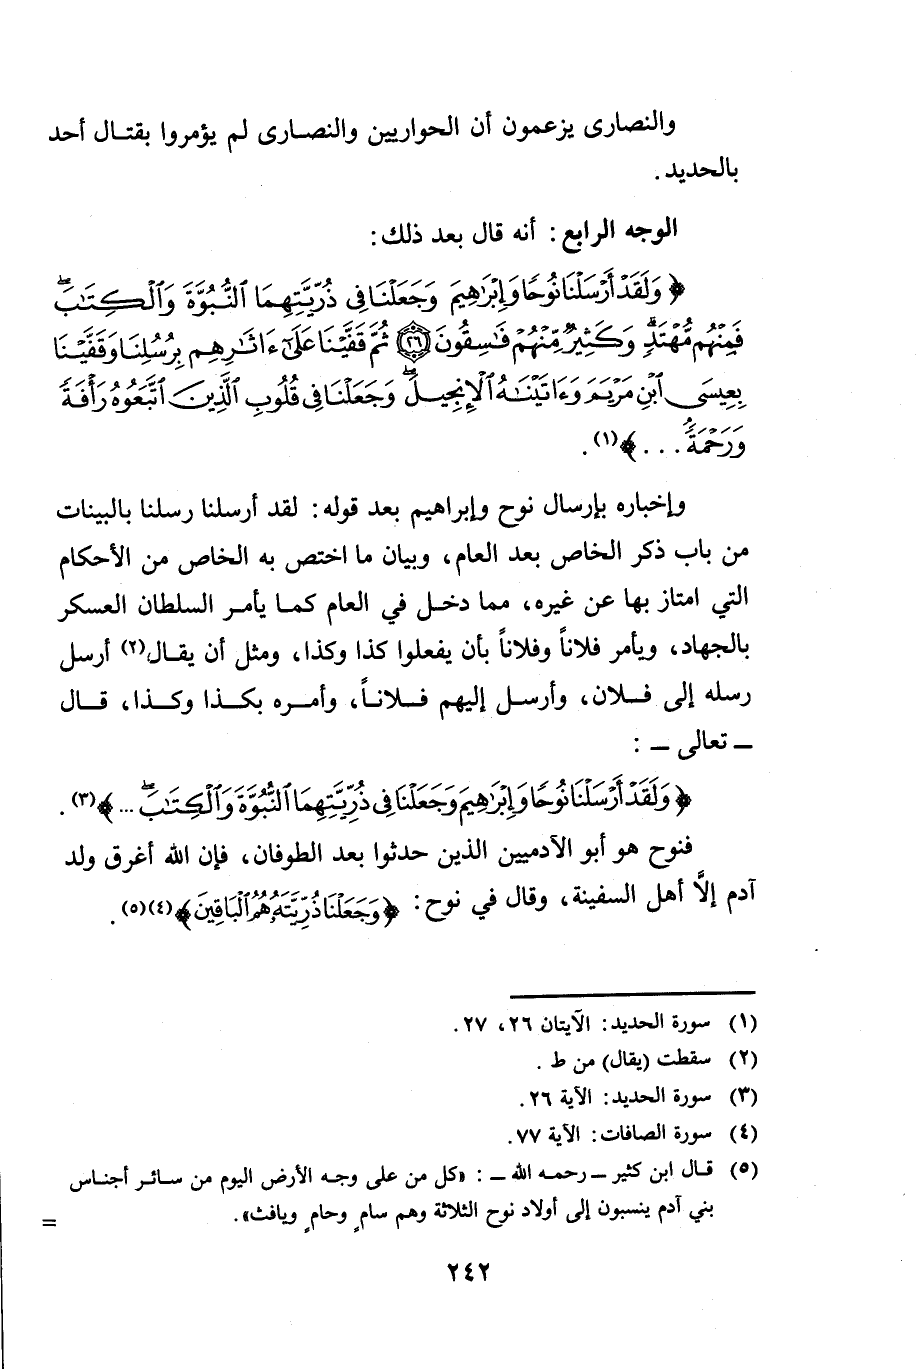 والنصارى يزعمون أن الحواريين والنصارى لم يؤمروا بقتال أحد
بالحديد.
الوجه الرابع: أنه قال بعد ذلك:
﴿ وَلَقَدْ أَرْسَلْنَا نُوحًا وَإِبْرَٰهِيمَ وَجَعَلْنَا فِى ذُرِّيَّتِهِمَا ٱلنُّبُوَّةَ وَٱلْكِتَٰبَۖ
فَمِنْهُم مُّهْتَدٍۖ وَكَثِيرٌ مِّنْهُمْ فَٰسِقُونَ ۝٢٦ ثُمَّ قَفَّيْنَا عَلَىٰٓ ءَاثَٰرِهِم بِرُسُلِنَا وَقَفَّيْنَا
بِعِيسَى ٱبْنِ مَرْيَمَ وَءَاتَيْنَٰهُ ٱلْإِنجِيلَۖ وَجَعَلْنَا فِى قُلُوبِ ٱلَّذِينَ ٱتَّبَعُوهُ رَأْفَةً
وَرَحْمَةًۚ . . . ﴾(١).
وإخباره بإرسال نوح وإبراهيم بعد قوله: لقد أرسلنا رسلنا بالبينات
من باب ذكر الخاص بعد العام، وبيان ما اختص به الخاص من الأحكام
التي امتاز بها عن غيره، مما دخل في العام كما يأمر السلطان العسكر
بالجهاد، ويأمر فلاناً وفلاناً بأن يفعلوا كذا وكذا، ومثل أن يقال(٢) أرسل
رسله إلى فلان، وأرسل إليهم فلاناً، وأمره بكذا وكذا، قال
ـ تعالى ـ :
﴿ وَلَقَدْ أَرْسَلْنَا نُوحًا وَإِبْرَٰهِيمَ وَجَعَلْنَا فِى ذُرِّيَّتِهِمَا ٱلنُّبُوَّةَ وَٱلْكِتَٰبَۖ ... ﴾(٣).
فنوح هو أبو الآدميين الذين حدثوا بعد الطوفان، فإن الله أغرق ولد
آدم إلَّا أهل السفينة، وقال في نوح: ﴿ وَجَعَلْنَا ذُرِّيَّتَهُۥ هُمُ ٱلْبَاقِينَ ﴾(٤)(٥).
(١) سورة الحديد: الآيتان ٢٦، ٢٧.
(٢) سقطت (يقال) من ط .
(٣) سورة الحديد: الآية ٢٦.
(٤) سورة الصافات: الآية ٧٧.
(٥) قال ابن كثير ـ رحمه الله ـ : «كل من على وجه الأرض اليوم من سائر أجناس
بني آدم ينسبون إلى أولاد نوح الثلاثة وهم سامٍ وحامٍ ويافث».
=
٢٤٢